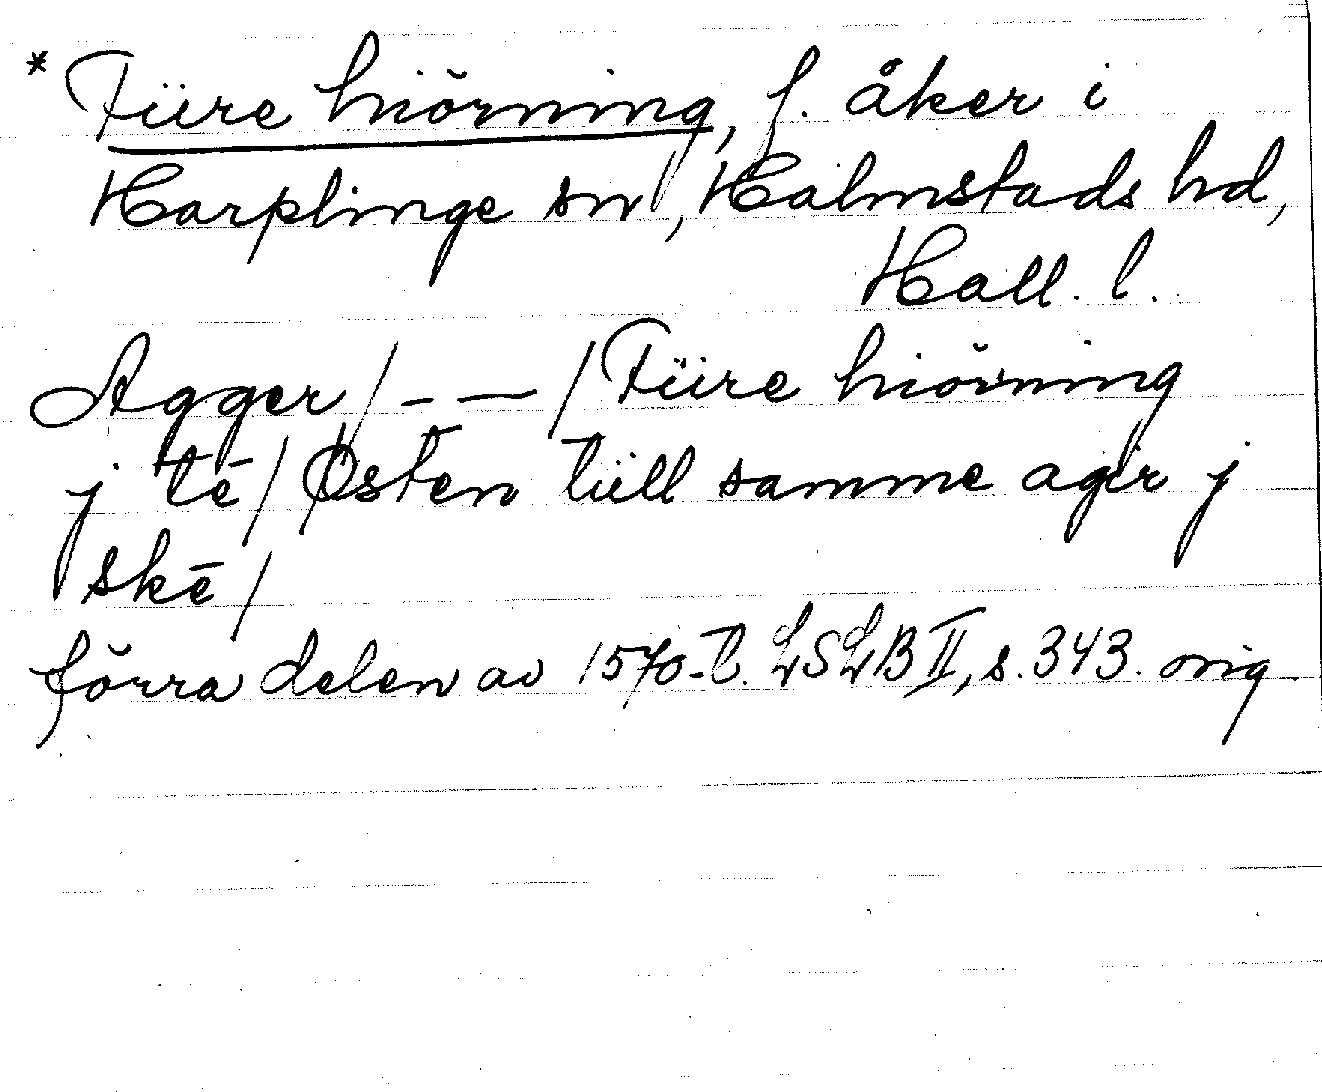 * Fiire hiörning, f. åker i
Harplinge sn, Halmstads hd,
Hall. l.
Agger / – — / Fiire hiörning
j tē / Østen tiill samme ager j
skē /
förra delen av 1570-t. LSLB II, s. 343. orig